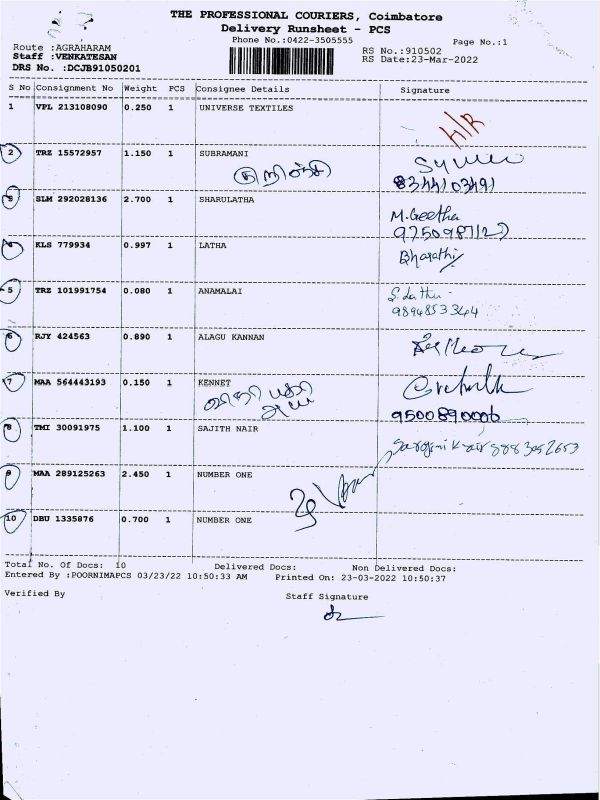 THE PROFESSIONAL COURIERS, Coimbatore
Delivery Runsheet - PCS
Phone No.:0422-3505555
Page No.:1
Route :AGRAHARAM
Staff :VENKATESAN
DRS No. :DCJB91050201
RS No.:910502
RS Date:23-Mar-2022
S No Consignment No Weight PCS Consignee Details Signature
1 VPL 213108090 0.250 1 UNIVERSE TEXTILES
H/R
2 TRZ 15572957 1.150 1 SUBRAMANI
8344103491
3 SLM 292028136 2.700 1 SHARULATHA
M.Geetha
9750987127
4 KLS 779934 0.997 1 LATHA
Bharathi
5 TRZ 101991754 0.080 1 ANAMALAI
9894853344
6 RJY 424563 0.890 1 ALAGU KANNAN
7 MAA 564443193 0.150 1 KENNET
9500890006
8 TMI 30091975 1.100 1 SAJITH NAIR
9 MAA 289125263 2.450 1 NUMBER ONE
10 DBU 1335876 0.700 1 NUMBER ONE
Total No. Of Docs: 10 Delivered Docs: Non Delivered Docs:
Entered By :POORNIMAPCS 03/23/22 10:50:33 AM Printed On: 23-03-2022 10:50:37
Verified By Staff Signature